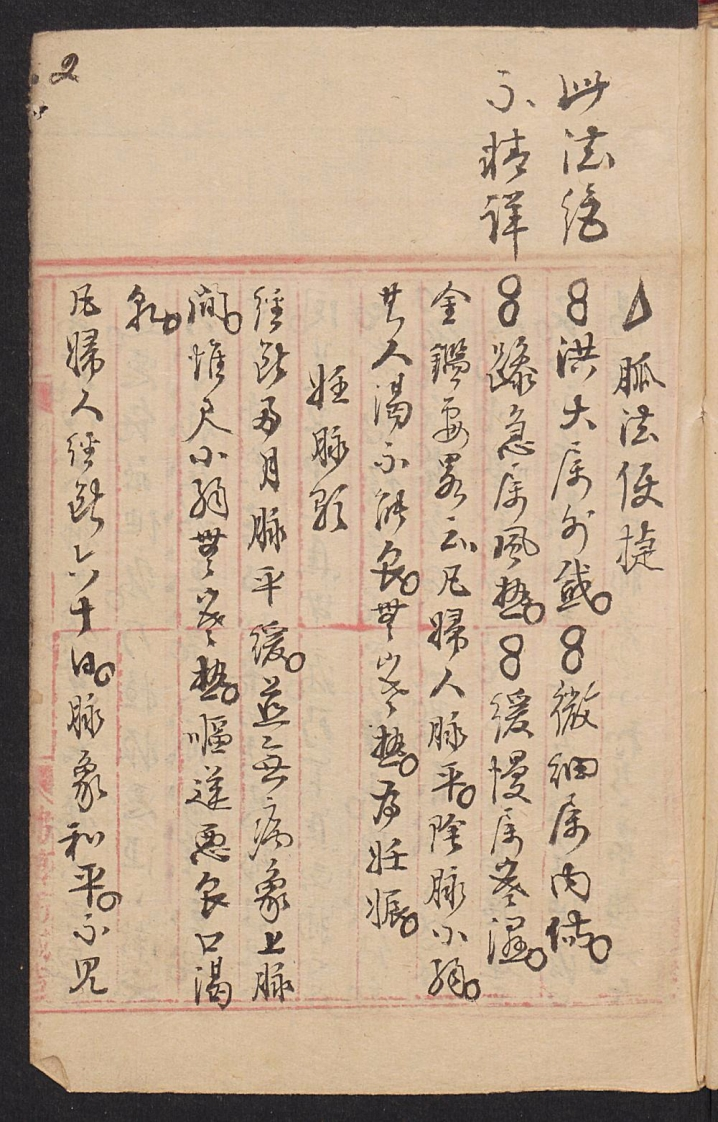 2
此法絶
不精詳
△脈法便捷
8洪大属外感。8微細属內傷。
8躁急属風熱。8緩慢属寒濕。
金鑑要畧云凡婦人脉平。陰脉小弱。
其人渴不能食。無寒熱。为妊娠。
妊脉歌
經断两月脉平緩。並無病象上脉
間。惟尺小弱無寒熱。嘔逆惡食口渴
乳。
凡婦人經断六十日。脉象和平。不見